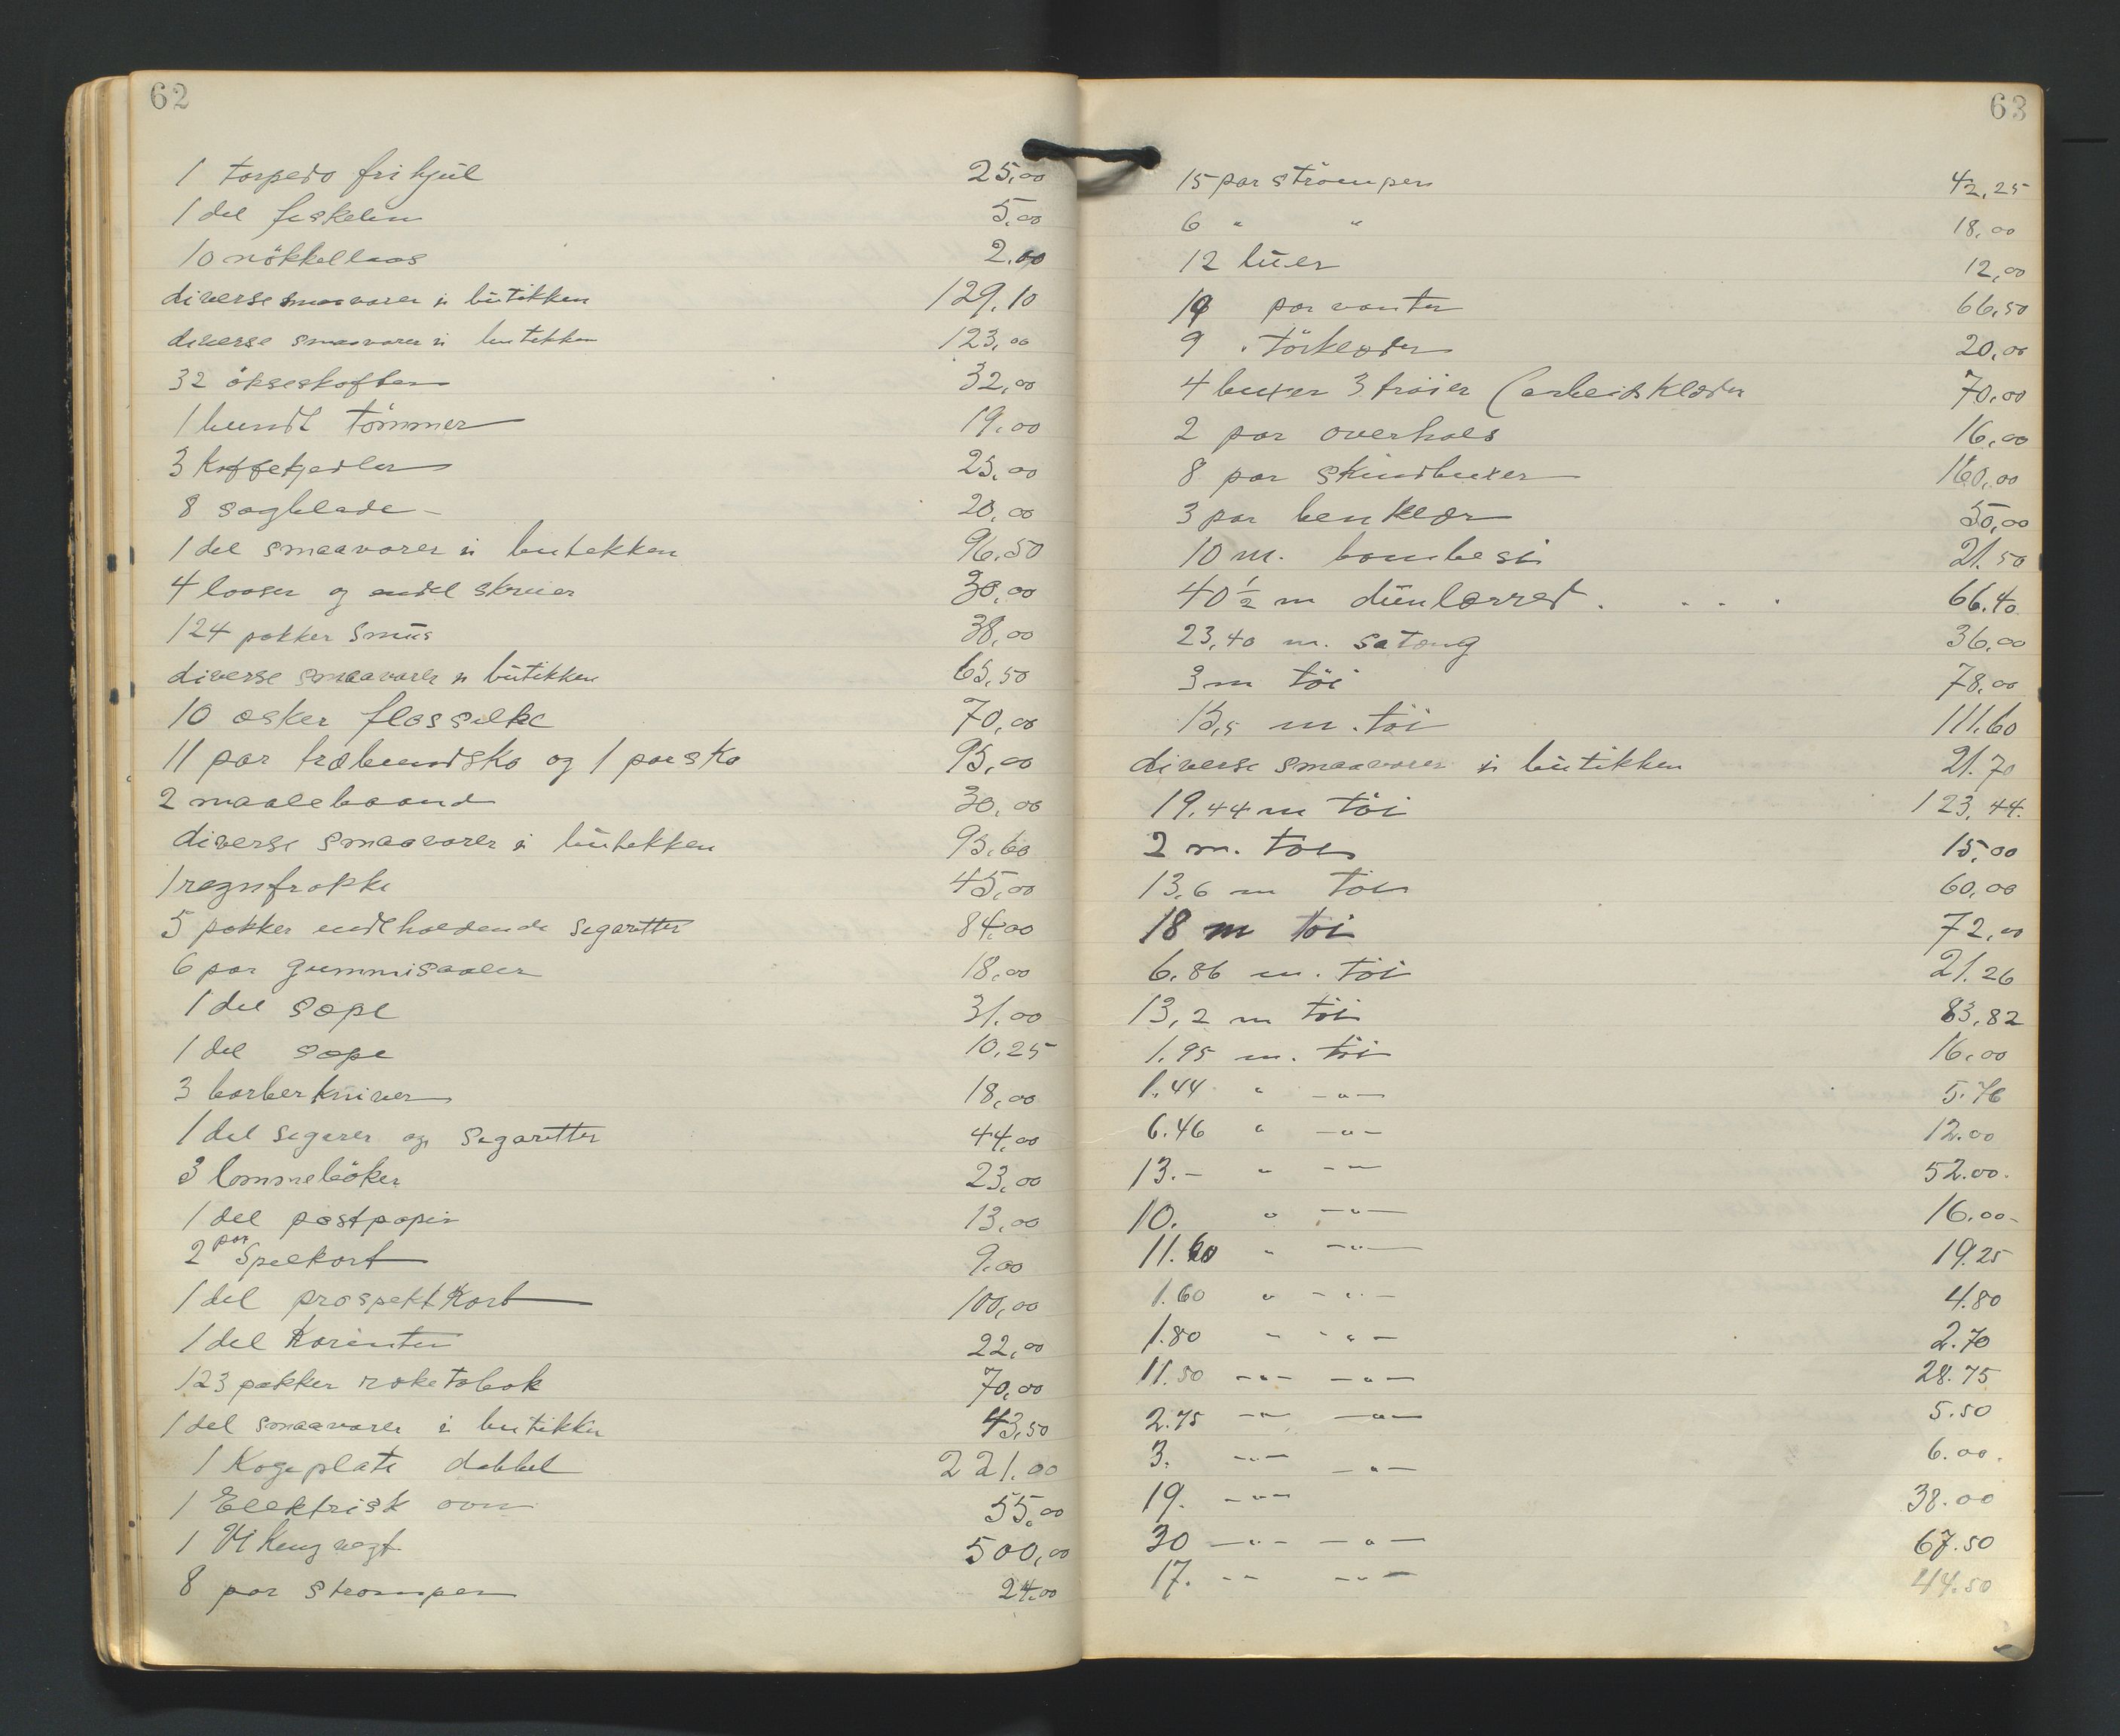 62
1 torpedo frihjul 25,00
1 del fiskelin 5,00
10 nökkellaas 2.00
diverse smaavarer i butikken 129,10
diverse smaavarer i butikken 123,00
32 ökseskafter 32,00
1 bundt tömmer 19,00
3 Kaffekjedler 25,00
8 sagblade - 20,00
1 del smaavarer i butikken 96,50
4 laaser og endel skruer 30,00
124 pakker snus 38,00
diverse smaavarer i butikken 65,50
10 æsker flossilke 70,00
11 par træbundsko og 1 par sko 95,00
2 maalebaand 30,00
diverse smaavarer i butikken 95,60
1 regnfrakke 45,00
5 pakker indholdende sigaretter 84,00
6 par gummisaaler 18,00
1 del sæpe 31,00
1 del sæpe 10,25
3 barberkniver 18,00
1 del sigarer og sigaretter 44,00
3 lommeböker 23,00
1 del postpapir 13,00
2 par Spilkort 9,00
1 del prospektkort 100,00
1 del Korinter 22,00
123 pakker röketobak 70,00
1 del smaavarer i butikken 43,50
1 Kogeplate dobbel 221,00
1 Elektrisk ovn 55,00
1 Vikingvegt 500,00
8 par strømper 24,00
63
15 par strömper 42,25
6 " " 18,00
12 luer 12,00
19 par vanter 66,50
9 törklæder 20,00
4 buxer 3 tröier (arbeidsklæder 70,00
2 par overhals 16,00
8 par skindbuxer 160,00
3 par benklær 50,00
10 m. bombesi 21.50
40 1/2 m dunlærret . . . . 66.40
23,40 m. sateng 36,00
3 m töi 78,00
15,5 m. töi 111.60
diverse smaavarer i butikken 21.70
19,44 m töi 123,44.
2 m. töi 15,00
13,6 m töi 60,00
18 m töi 72,00
6,86 m. töi 21.26
13,2 m töi 83,82
1,95 m. töi 16,00
1,44 " -"- 5.76
6.46 " -"- 12.00
13.- " -"- 52.00.
10. " -"- 16.00-
11.60 " -"- 19.25
1.60 " -"- 4.80
1.80 " -"- 2.70
11.50 -"- -"- 28.75
2.75 -"- -"- 5.50
3. -"- -"- 6.00.
19. -"- 38.00
30 -"- -"- 67.50
17. -"- -"- 44.50